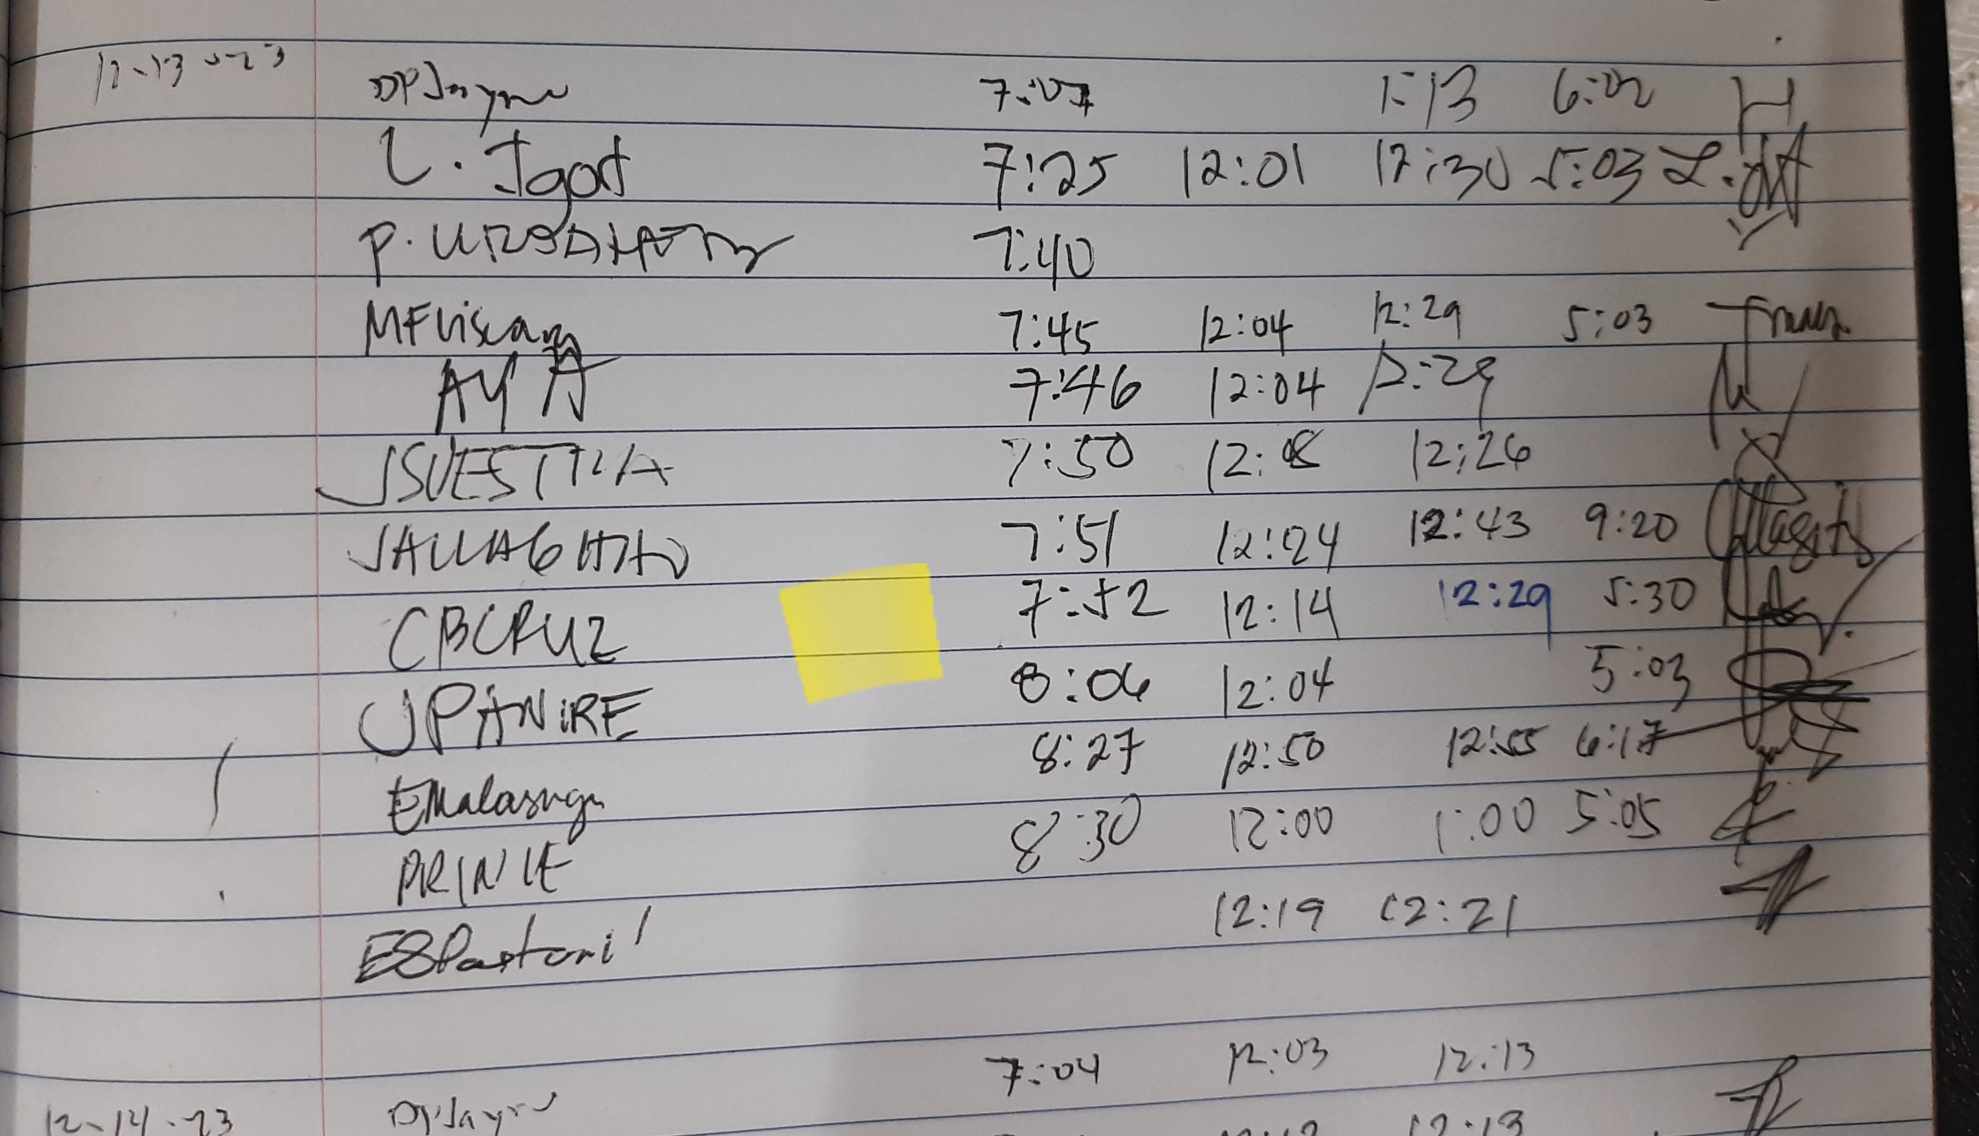 12-13-23 DPJayme 7:07 1:13 6:02
L. Igot 7:25 12:01 12:30 5:03
P. 7:40
MFViscara 7:45 12:04 12:29 5:03
AYA 7:46 12:04 12:29
7:50 12:08 12:26
7:51 12:24 12:43 9:20
CBCRUZ 7:52 12:14 12:29 5:30
JPANIRE 8:06 12:04 5:03
EMalasuga 8:27 12:50 12:55 6:17
PRINCE 8:30 12:00 1:00 5:05
ESPastoril 12:19 12:21
12-14-23 DPJayme 7:04 12:03 12:13
12:13